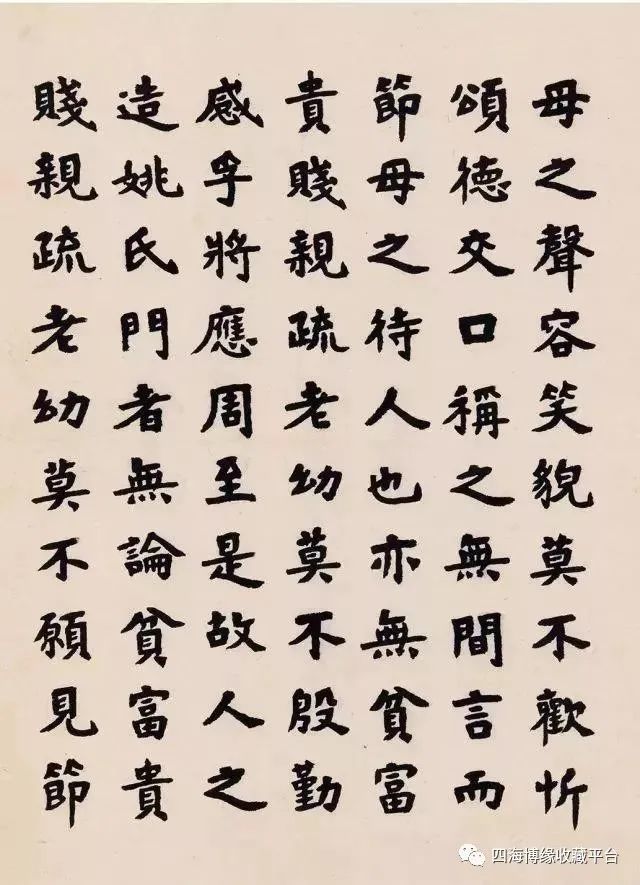 母之聲容笑貌莫不歡忻
頌德交口稱之無間言而
節母之待人也亦無貧富
貴賤親疏老幼莫不殷勤
感孚將應周至是故人之
造姚氏門者無論貧富貴
賤親疏老幼莫不願見節
四海博缘收藏平台